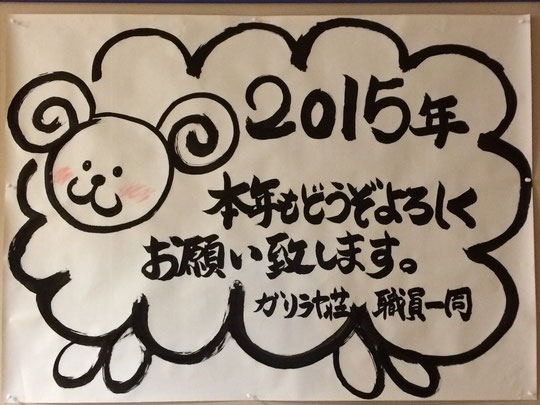 2015年
本年もどうぞよろしく
お願い致します。
ガリラヤ荘 職員一同